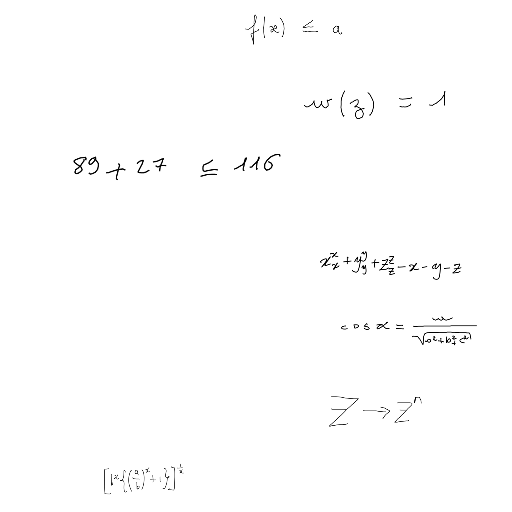 f(x) ≤ a
w(z) = 1
89 + 27 ≤ 116
x_x^x + y_y^y + z_z^z - x - y - z
cos α = w / √(a² + b² + c²)
Z → Z^n
[b^x{(a/b)^x + 1}]^{1/x}